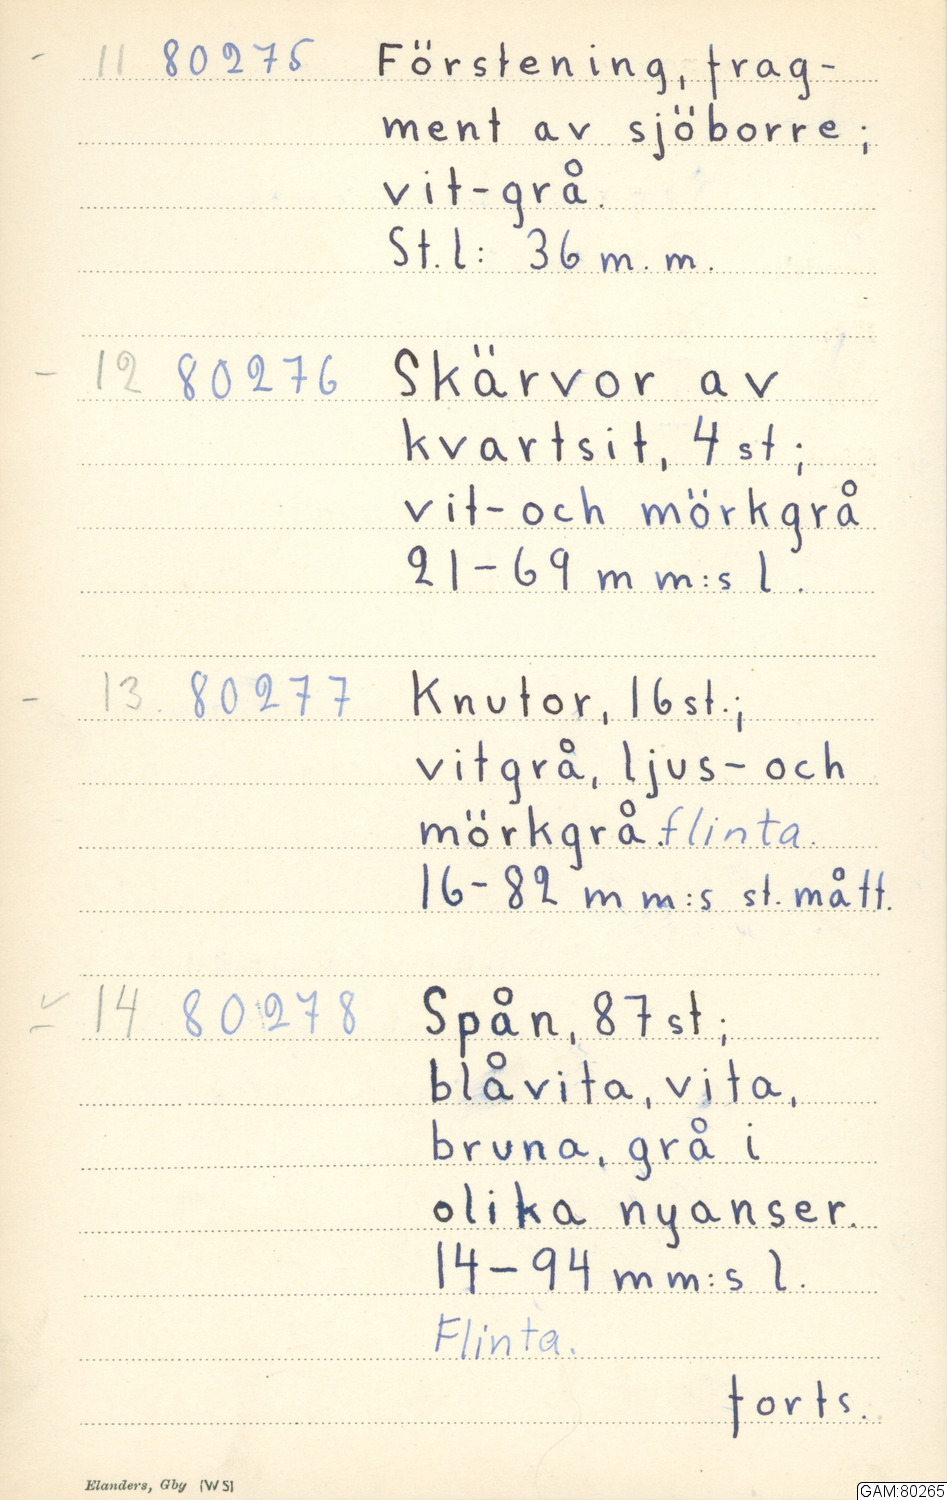 - 11 80275 Förstening, frag-
ment av sjöborre;
vit-grå.
St. l: 36 m. m.
- 12 80276 Skärvor av
kvartsit, 4 st;
vit- och mörkgrå
21-69 m m:s l.
- 13. 80277 Knutor, 16 st.;
vitgrå, ljus- och
mörkgrå. flinta.
16-82 m m:s st. mått.
- 14 80278 Spån, 87 st;
blåvita, vita,
bruna, grå i
olika nyanser.
14-94 m m:s l.
Flinta.
forts.
Elanders, Gby (W S)
GAM:80265